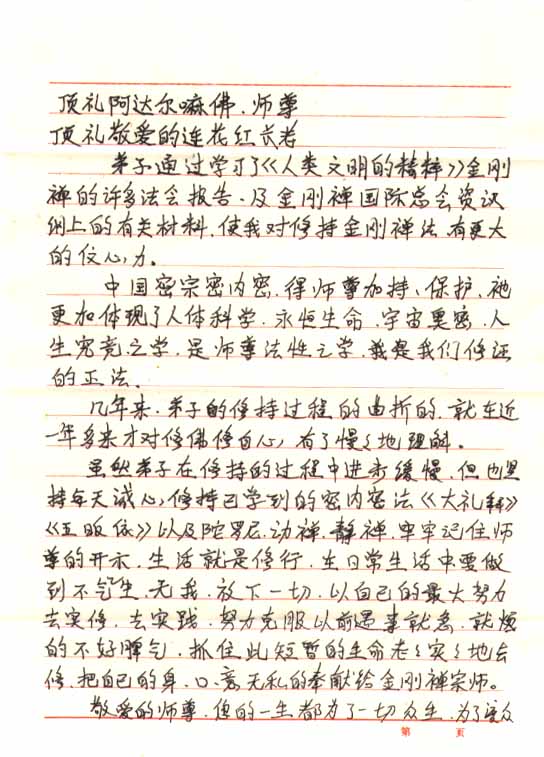 顶礼阿达尔嘛佛、师尊
顶礼敬爱的连花红长者
弟子通过学习了《人类文明的精粹》金刚
禅的许多法会报告、及金刚禅国际总会资讯
网上的有关材料、使我对修持金刚禅法、有更大
的信心力。
中国密宗密内密、得师尊加持、保护、祂
更加体现了人体科学、永恒生命、宇宙奥密、人
生究竟之学、是师尊法性之学、就是我们修证
的正法、
几年来、弟子的修持过程的曲折的、就在近
一年多来才对修佛修自心、有了慢々地理解。
虽然弟子在修持的过程中进步缓慢、但也坚
持每天诚心修持已学到的密内密法《大礼拜》
《五皈依》以及陀罗尼、动禅、静禅、牢牢记住师
尊的开示、生活就是修行、在日常生活中要做
到不气生、无我、放下一切、以自己的最大努力
去实修、去实践、努力克服以前遇事就急、就烦
的不好脾气、抓住此短暂的生命老々实々地去
修、把自己的身、口、意、无私的奉献给金刚禅宗师。
敬爱的师尊、您的一生都为了一切众生、为了众
第 页